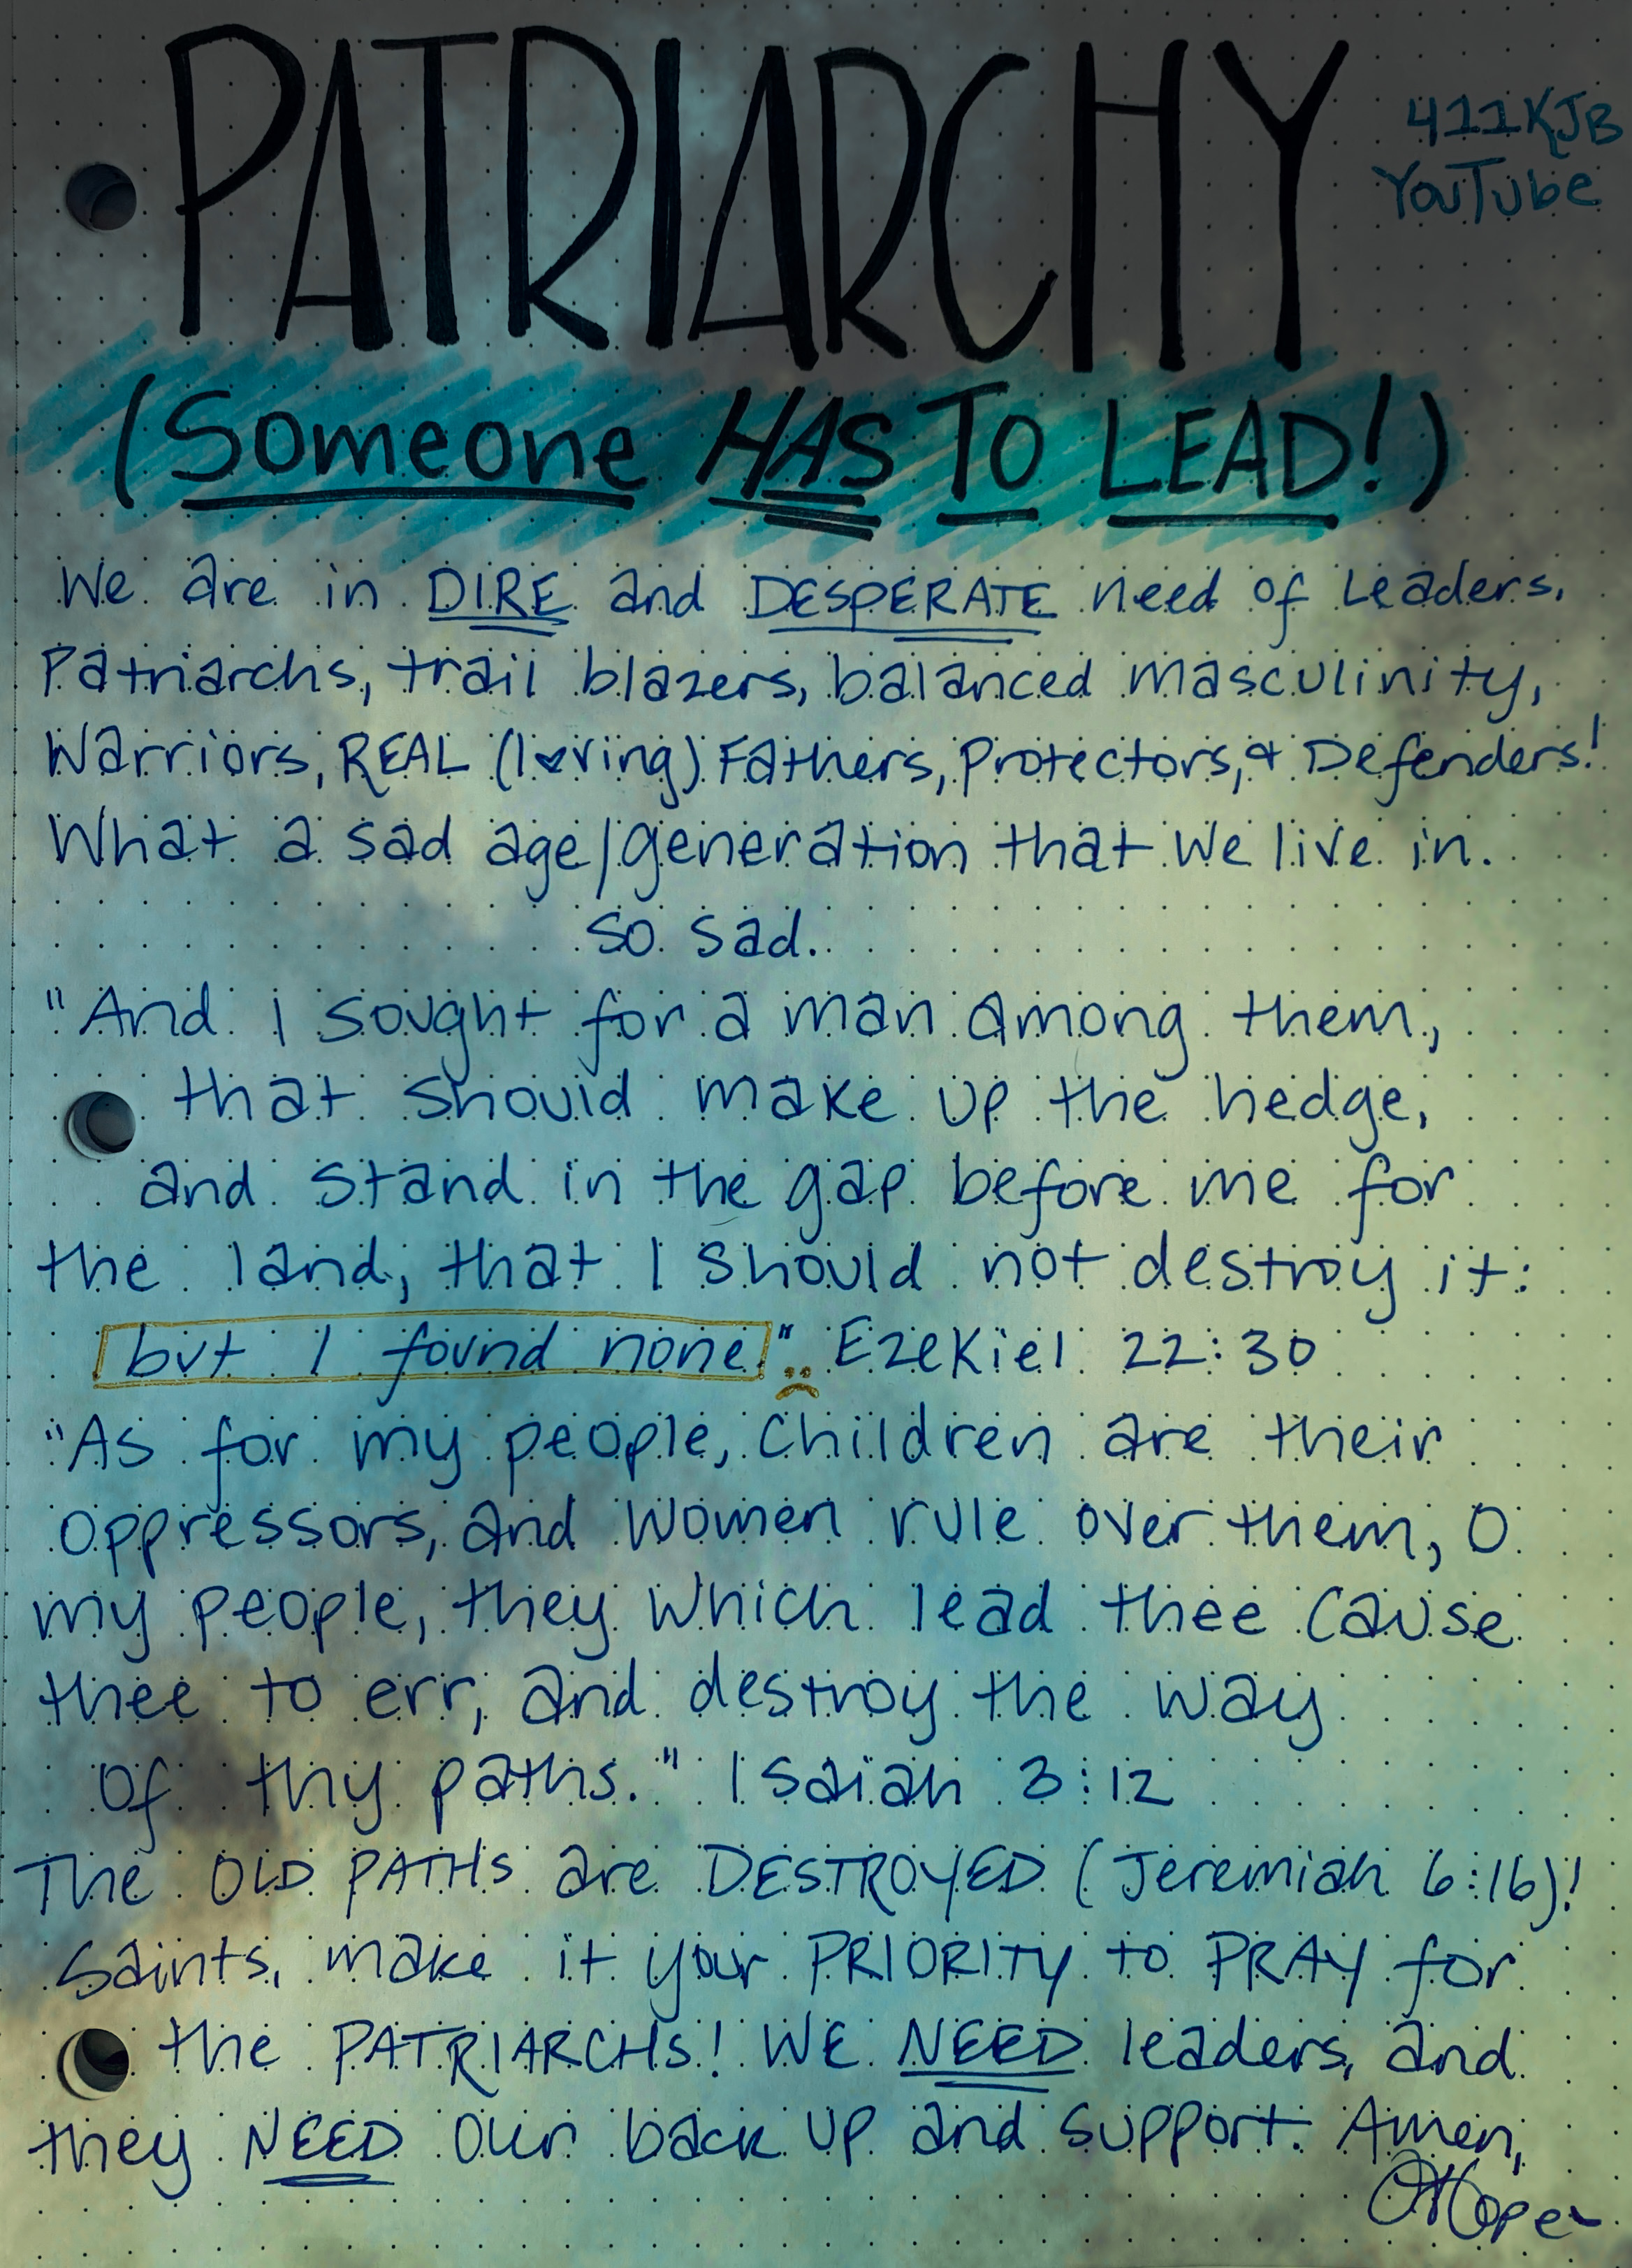 PATRIARCHY
411KJB
YouTube
(Someone HAS TO LEAD!)
We are in DIRE and DESPERATE need of Leaders,
Patriarchs, trail blazers, balanced masculinity,
Warriors, REAL (loving) Fathers, Protectors, & Defenders!
What a sad age/generation that we live in.
So sad.
"And I sought for a man among them,
that should make up the hedge,
and stand in the gap before me for
the land, that I should not destroy it:
but I found none." Ezekiel 22:30
"As for my people, children are their
oppressors, and women rule over them, O
my people, they which lead thee cause
thee to err, and destroy the way
of thy paths." Isaiah 3:12
The OLD PATHS are DESTROYED (Jeremiah 6:16)!
Saints, make it your PRIORITY to PRAY for
the PATRIARCHS! WE NEED leaders, and
they NEED our back up and support. Amen,